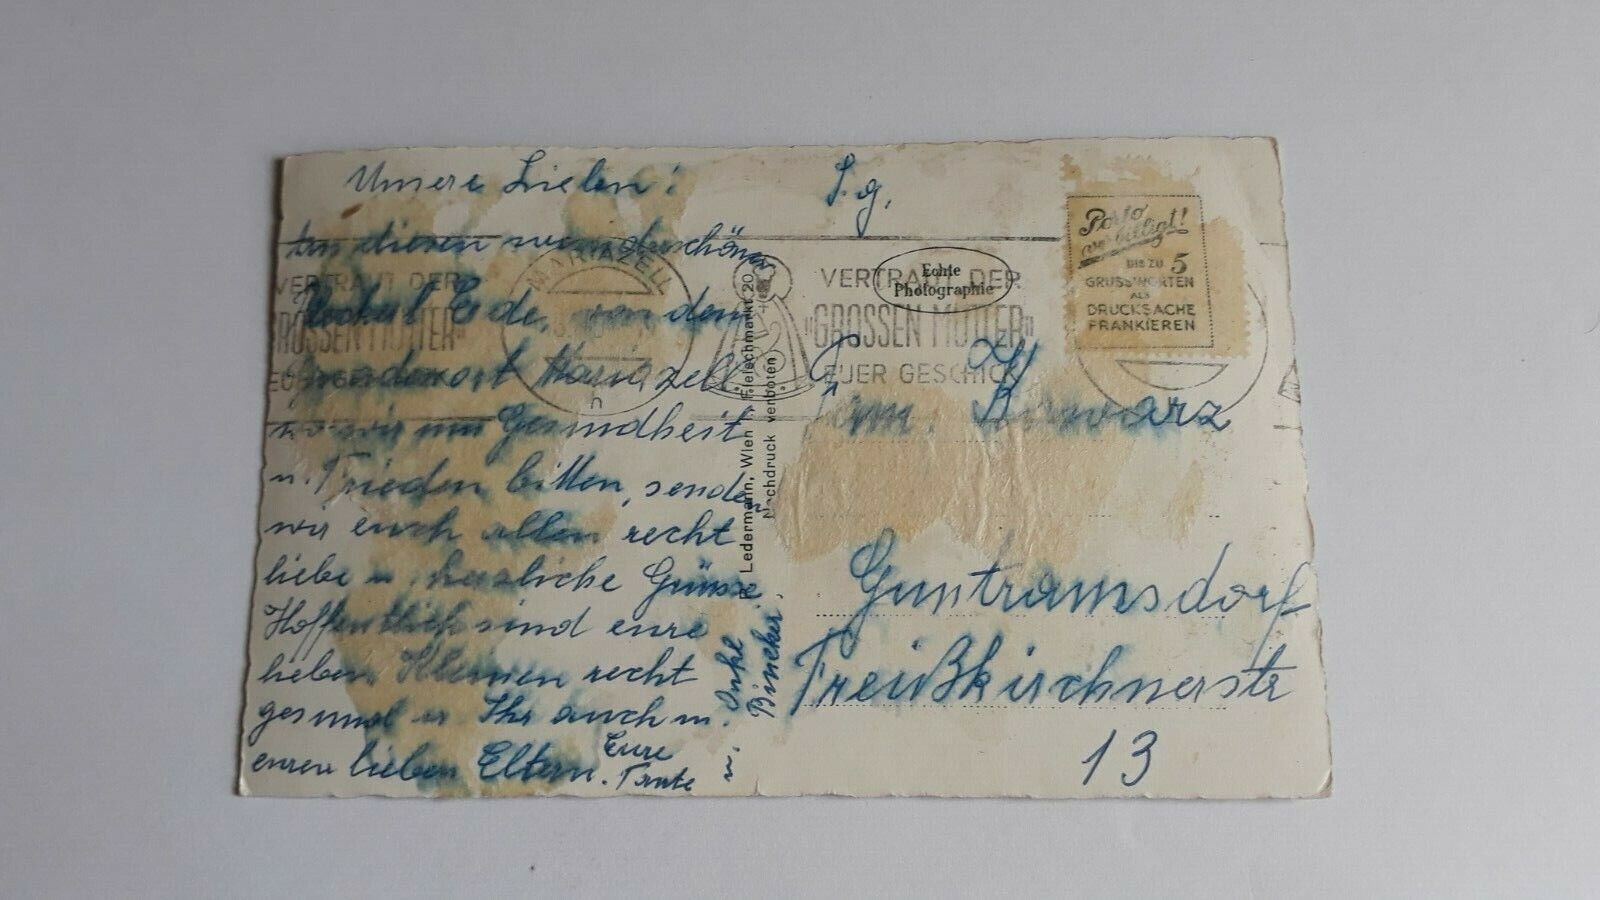 Unsere Lieben!
An diesen wunderschönen
Fleckerl Erde, von dem
Gnadenort Mariazell
wo wir um Gesundheit
u. Frieden bitten, senden
wir euch allen recht
liebe u. herzliche Grüsse.
Hoffentlich sind eure
lieben Kleinen recht
gesund u. Ihr auch m.
euren lieben Eltern. Eure
Tante
u. Onkel
S.g.
Fam.
Guntramsdorf
13
VERTRAUT DER
GROSSEN MUTTER»
EUER
MARIAZELL
h
VERTRAUT DER
«GROSSEN MUTTER»
EUER GESCHICK
Echte
Photographie
Porto
ausbilligt!
BIS ZU 5
GRUSSWORTEN
ALS
DRUCKSACHE
FRANKIEREN
Ledermann, Wien I. Fleischmarkt 20
Nachdruck verboten